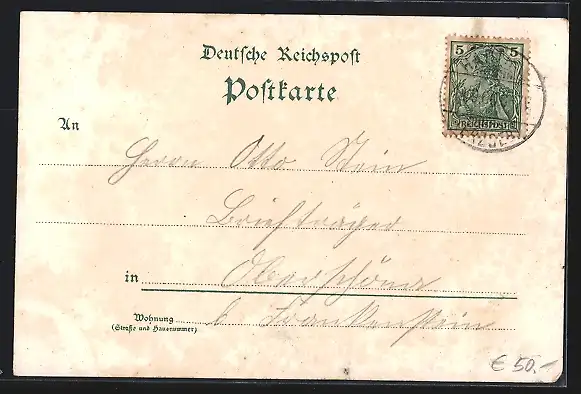 Deutsche Reichspost
Postkarte
5 5
REICHSPOST
An
Herrn Otto Stein
Briefträger
in Oberschöna
Wohnung b. Frankenstein
(Straße und Hausnummer)
€ 50.-